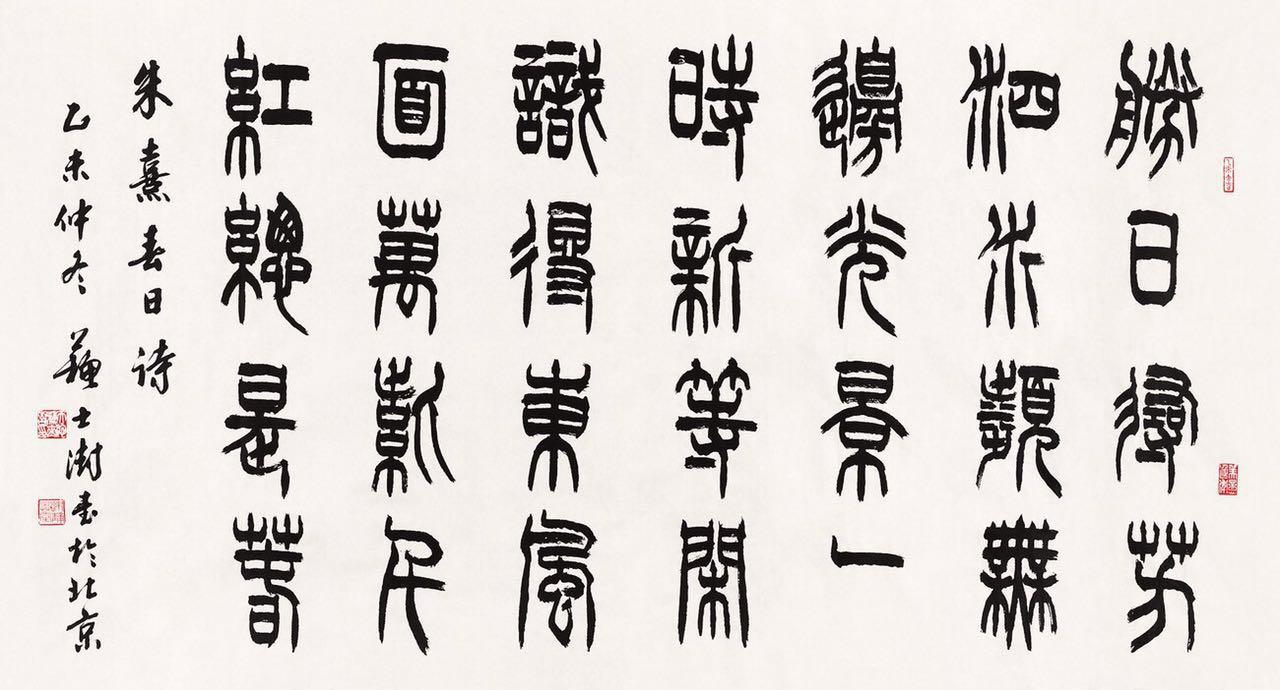 勝日尋芳
泗水瀕無
邊光景一
時新等閑
識得東風
面萬紫千
紅總是春
朱熹春日詩
乙未仲冬 蘇士澍書於北京